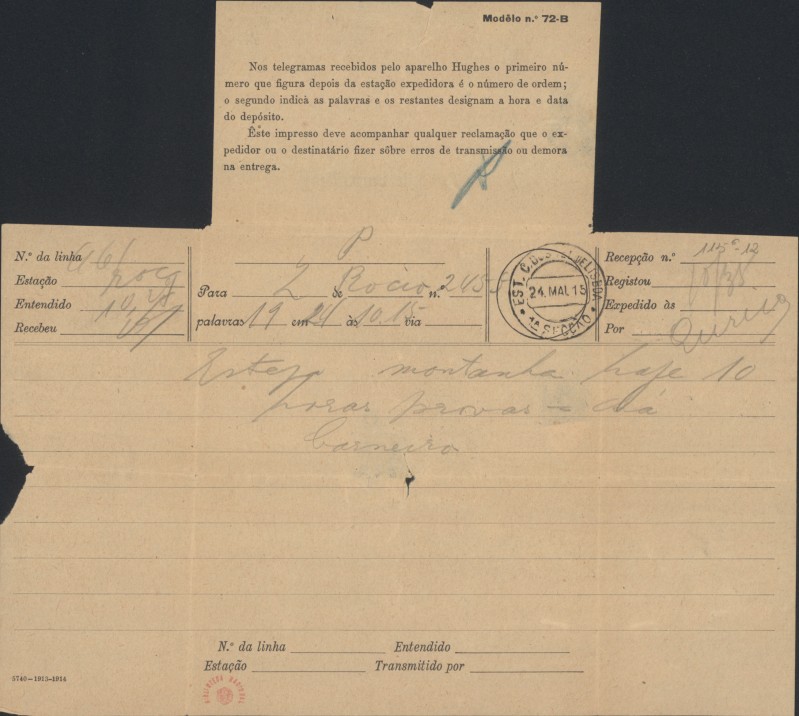 Modêlo n.º 72-B
Nos telegramas recebidos pelo aparelho Hughes o primeiro nú-
mero que figura depois da estação expedidora é o número de ordem;
o segundo indica as palavras e os restantes designam a hora e data
do depósito.
Êste impresso deve acompanhar qualquer reclamação que o ex-
pedidor ou o destinatário fizer sôbre erros de transmissão ou demora
na entrega.
N.º da linha
Estação
Entendido
Recebeu
P
Para 2 de Rocio n.º 245
palavras 19 em 24 às 10.15 via
EST. C. DOS DE LISBOA
24. MAI. 15
1ª SECÇÃO
Recepção n.º
Registou
Expedido às
Por
Esteja montanha hoje 10
horas provas = dá
Carneiro
N.º da linha Entendido
Estação Transmitido por
5740-1913-1914
BIBLIOTECA NACIONAL